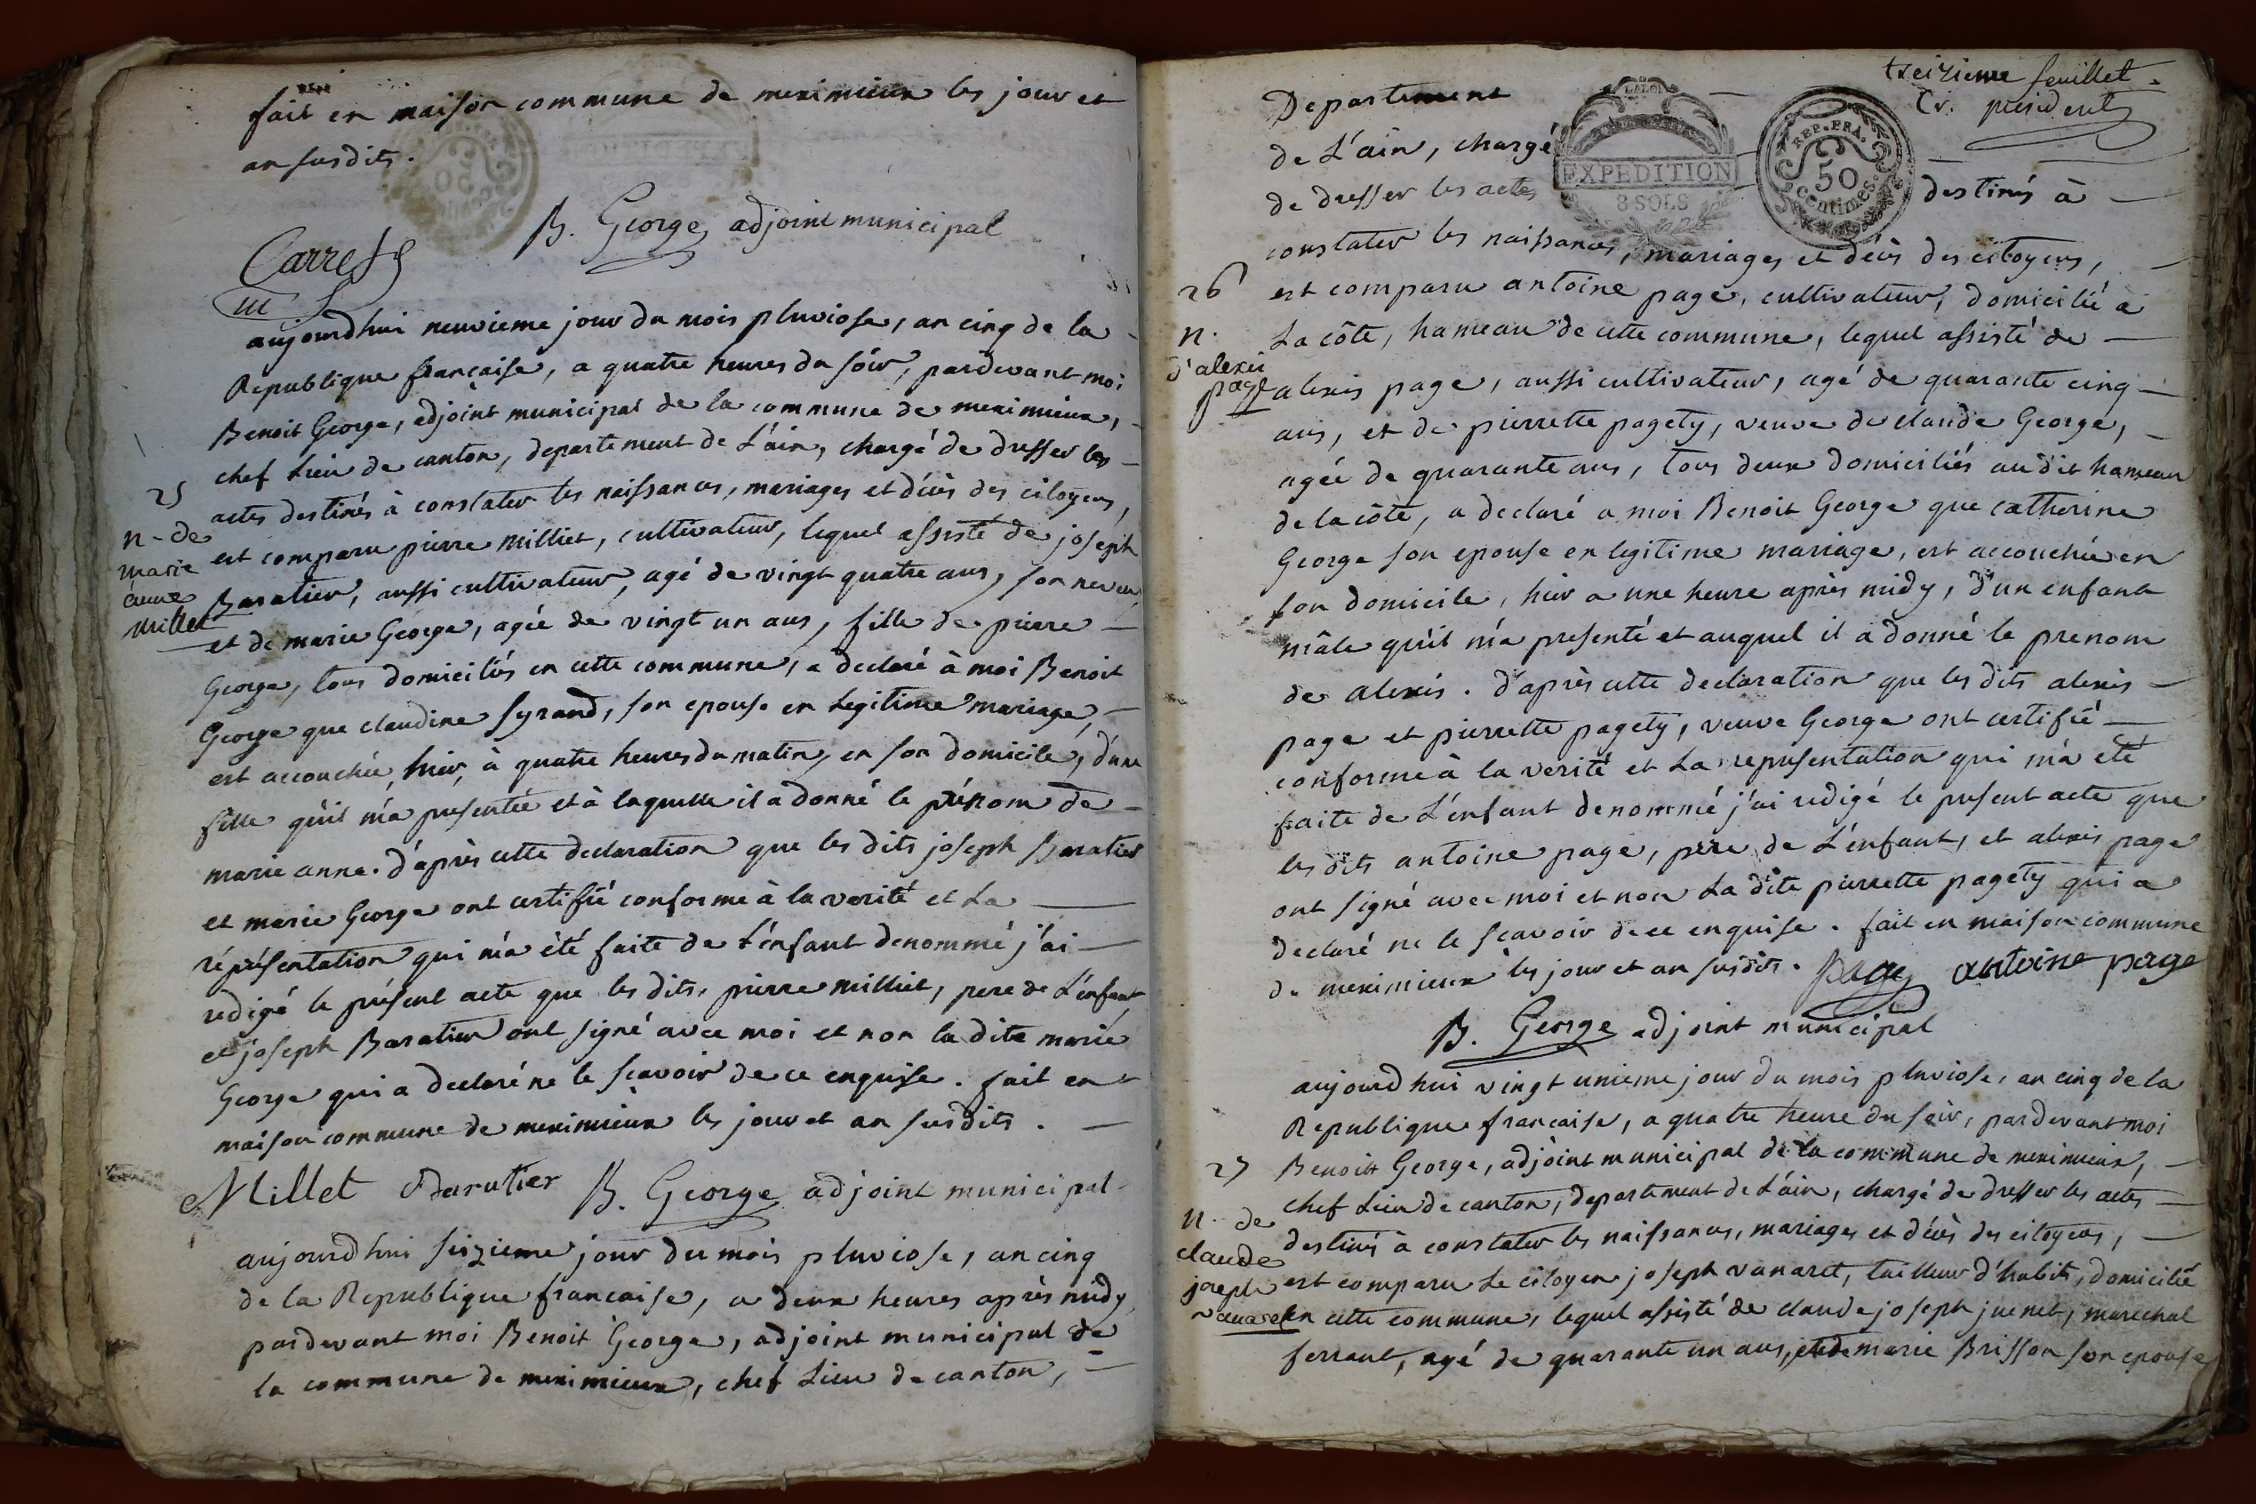 fait en maison commune de meximieux les jour et
an susdits.
B. George adjoint municipal
Carret
aujourdhui neuvieme jour du mois pluviose, an cinq de la
Republique française, a quatre heures du soir, pardevant moi
Benoit George, adjoint municipal de la commune de meximieux,
chef Lieu de canton, departement de L'ain, chargé de dresser les
actes destinés à constater les naissances, mariages et décès des citoyens,
25
n. de
marie
anne
Millet
est comparu pierre milliet, cultivateur, lequel assisté de joseph
Baratier, aussi cultivateur, agé de vingt quatre ans, son neveu,
et de marie George, agée de vingt un ans, fille de pierre
George, tous domiciliés en cette commune, a declaré à moi Benoit
George que claudine Syrand, son epouse en Legitime mariage,
est accouchée, hier, à quatre heures du matin, en son domicile, d'une
fille qu'il m'a presentée et à laquelle il a donné le prénom de
marie anne. d'après cette declaration que les dits joseph Baratier
et marie George ont certifié conforme à la verité et La
réprésentation qui m'a été faite de L'enfant denommé j'ai
redigé le présent acte que les dits, pierre milliet, pere de L'enfant
et joseph Baratier ont signé avec moi et non la dite marie
George qui a declaré ne le sçavoir de ce enquise. fait en
maison commune de meximieux les jour et an susdits.
Millet Baratier B. George adjoint municipal
aujourdhui seizieme jour du mois pluviose, an cinq
de la Republique française, a deux heures après midy,
pardevant moi Benoit George, adjoint municipal de
la commune de meximieux, chef Lieu de canton,
treizieme feuillet.
president
EXPEDITION
8 SOLS
REP. FRA.
50
Centimes.
Departement
de L'ain, chargé
de dresser les actes destinés à
constater les naissances, mariages et décès des citoyens,
26
n.
d'alexis
page
est comparu antoine page, cultivateur, domicilié à
La côte, hameau de cette commune, lequel assisté de
alexis page, aussi cultivateur, agé de quarante cinq
ans, et de pierrette pagety, veuve de claude George,
agée de quarante ans, tous deux domiciliés au dit hameau
de la côte, a declaré a moi Benoit George que catherine
George son epouse en legitime mariage, est accouchée en
son domicile, hier a une heure après midy, d'un enfant
mâle qu'il m'a presenté et auquel il a donné le prenom
de alexis. d'après cette declaration que les dits alexis
page et pierrette pagety, veuve George ont certifié
conforme à la verité et La representation qui m'a été
faite de L'enfant denommé j'ai redigé le present acte que
les dits antoine page, pere de L'enfant, et alexis page
ont signé avec moi et non La dite pierrette pagety qui a
declaré ne le sçavoir de ce enquise. fait en maison commune
de meximieux les jour et an susdits. page antoine page
B. George adjoint municipal
aujourd hui vingt unieme jour du mois pluviose, an cinq de la
Republique française, a quatre heure du soir, pardevant moi
Benoit George, adjoint municipal de la commune de meximieux,
chef Lieu de canton, departement de L'ain, chargé de dresser les actes
destinés à constater les naissances, mariages et décès des citoyens,
27
n. de
claude
joseph
vanaret
est comparu Le citoyen joseph vanaret, tailleur d'habits, domicilié
en cette commune, lequel assisté de claude joseph juenet, marechal
ferrant, agé de quarante un ans, et de marie Brisson son epouse